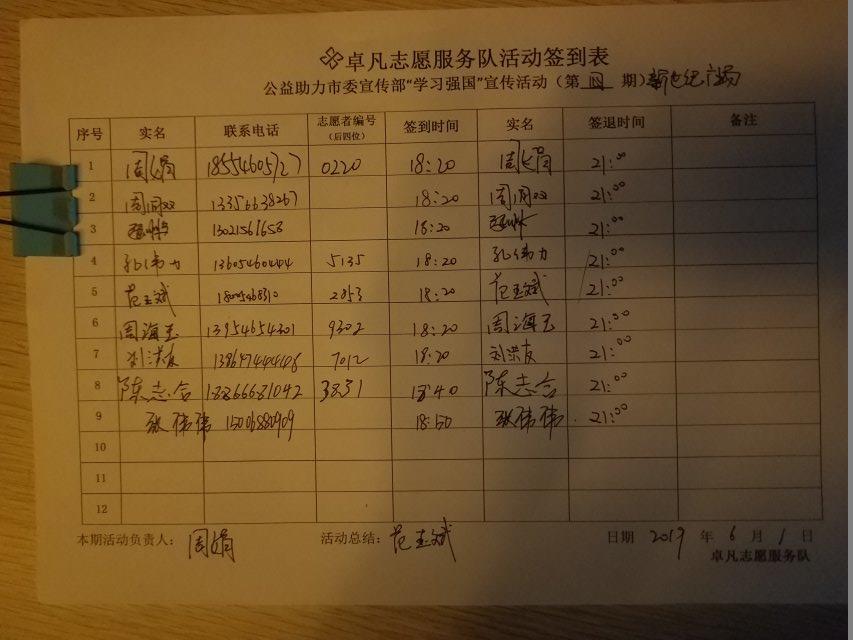 卓凡志愿服务队活动签到表
公益助力市委宣传部"学习强国"宣传活动（第 四 期）新世纪广场
序号 实名 联系电话 志愿者编号（后四位） 签到时间 实名 签退时间 备注
1 周娟 18554605727 0220 18:20 周娟 21:00
2 周同双 13356638267 18:20 周同双 21:00
3 13021561658 18:20 21:00
4 孔伟力 13605460444 5135 18:20 孔伟力 21:00
5 范玉斌 18005468310 2053 18:20 范玉斌 21:00
6 周海玉 13954654301 9302 18:20 周海玉 21:00
7 刘洪友 7012 18:20 刘洪友 21:00
8 陈志合 18266681042 3831 18:40 陈志合 21:00
9 张伟伟 15006880909 18:50 张伟伟 21:00
10
11
12
本期活动负责人： 周娟 活动总结： 范玉斌 日期 2019 年 6 月 1 日
卓凡志愿服务队